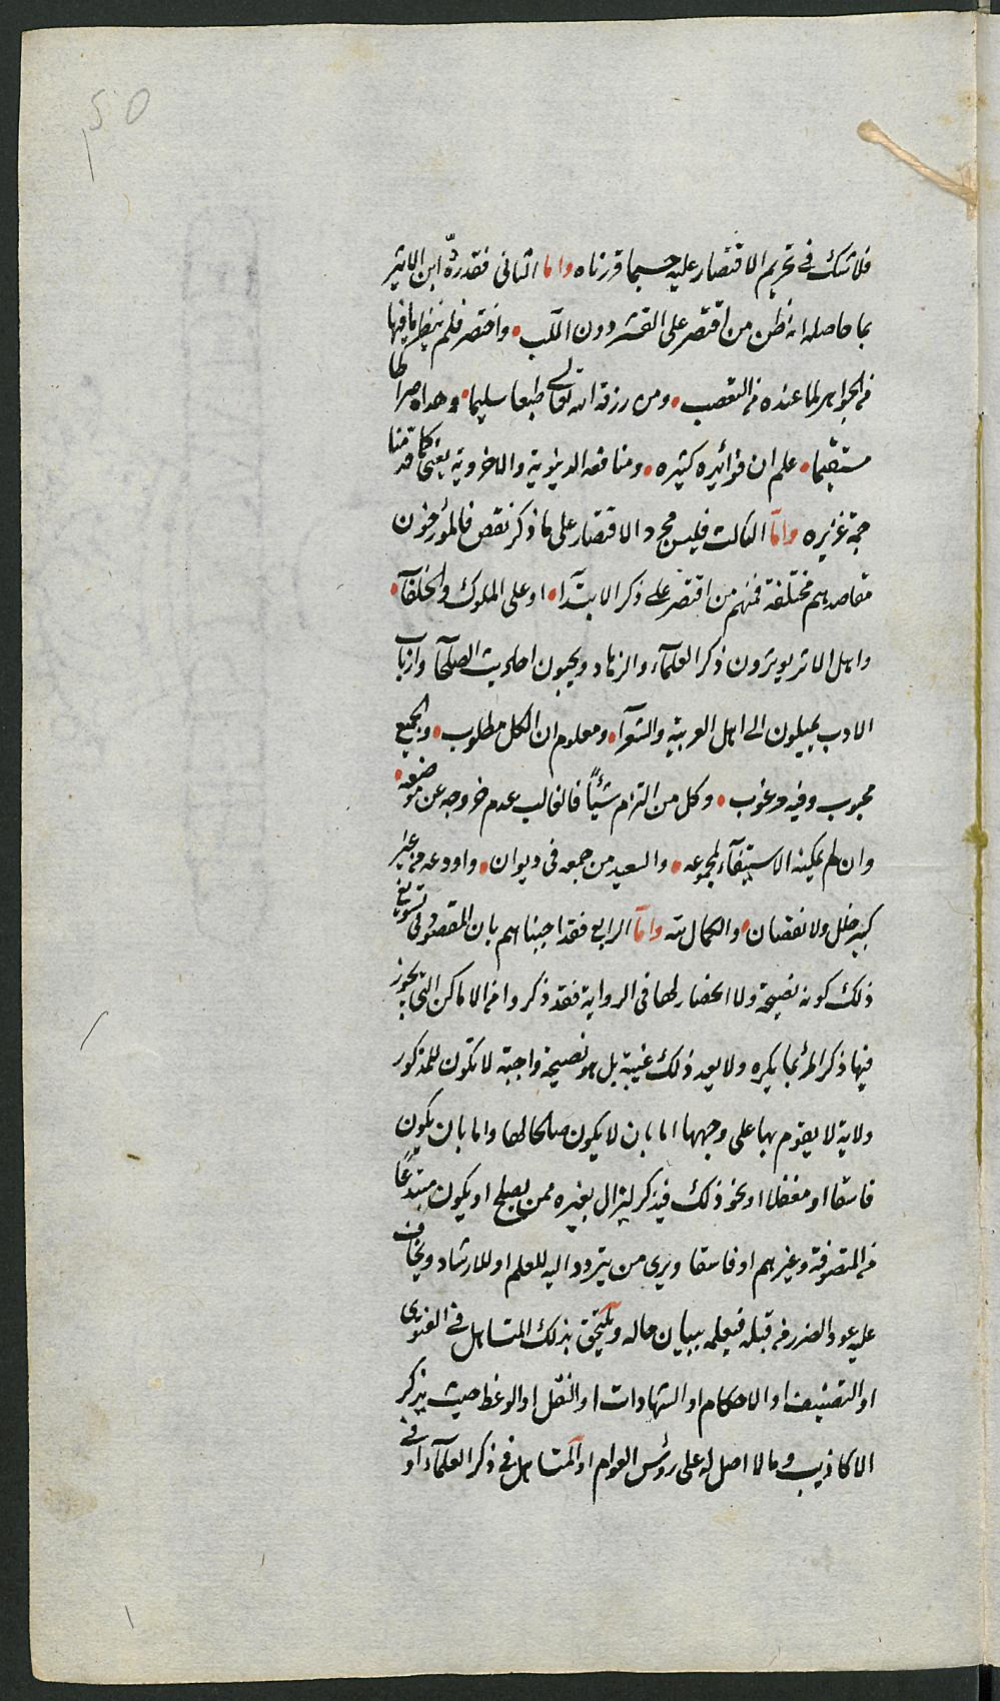 50
فلا شك في تحريم الاقتصار عليه حسبما قررناه واما الثاني فقد رده ابن الاثير
بما حاصله انه ظن من اقتصر على القشر دون اللب • واختصر فلم ينظر ما فيها
من الجواهر لما عنده من التعصب • ومن رزقه الله تعالى طبعا سليما • وهداه صراطا
مستقيما • علم ان فوائده كثيره • ومنافعه الدنيوية والاخروية يعني كما قدمنا
جمة غزيره واما الثالث فليس مجرد الاقتصار على ما ذكر نقص فالمؤرخون
مقاصدهم مختلفة فمنهم من اقتصر على ذكر الابتدآء • او على الملوك والخلفآء •
واهل الاثر يوثرون ذكر العلمآء والزهاد ويحبون احاديث الصلحآ وارباب
الادب يميلون الى اهل العربية والشعرآء • ومعلوم ان الكل مطلوب • والجميع
محبوب وفيه مرغوب • وكل من التزم شيئاً فالغالب عدم خروجه عن موضعه •
وان لم يمكنه الاستيفآء لمجموعه • والسعيد من جمعه في ديوان • واودعه من غير
كبير خلل ولا نقصان • والكمال لله واما الرابع فقد اجبناهم بان المقصود في تسويغ
ذلك كونه نصيحة ولا انحصار لها في الرواية فقد ذكروا من الاماكن التي يجوز
فيها ذكر المرء بما يكره ولا يعد ذلك غيبة بل هو نصيحة واجبة لا تكون للمذكور
ولاية لا يقوم بها على وجهها اما بان لا يكون صالحا لها واما بان يكون
فاسقا او مغفلا او نحو ذلك فيذكر ليزال بغيره ممن يصلح او يكون مبتدعًا
من المتصوفة وغيرهم او فاسقا ويرى من يتردد اليه للعلم او للارشاد ويخاف
عليه عود الضرر من قبله فيعلمه ببيان حاله ويلتحق بذلك المتساهل في الفتوى
او التصنيف او الاحكام او الشهادات او النقل او الوعظ حيث يذكر
الاكاذيب وما لا اصل له على رؤس العوام او المتساهل في ذكر العلمآء او في